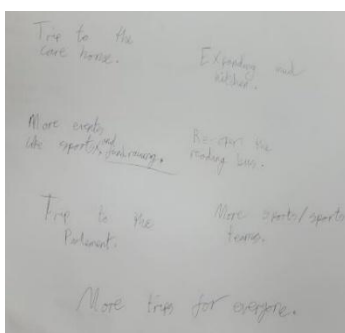 Trip to the
care home.
Expanding
kitchen.
More events
like sports, and fundraising.
Re-start the
reading bus.
Trip to the
Parliament.
More sports/sports
teams.
More trips for everyone.